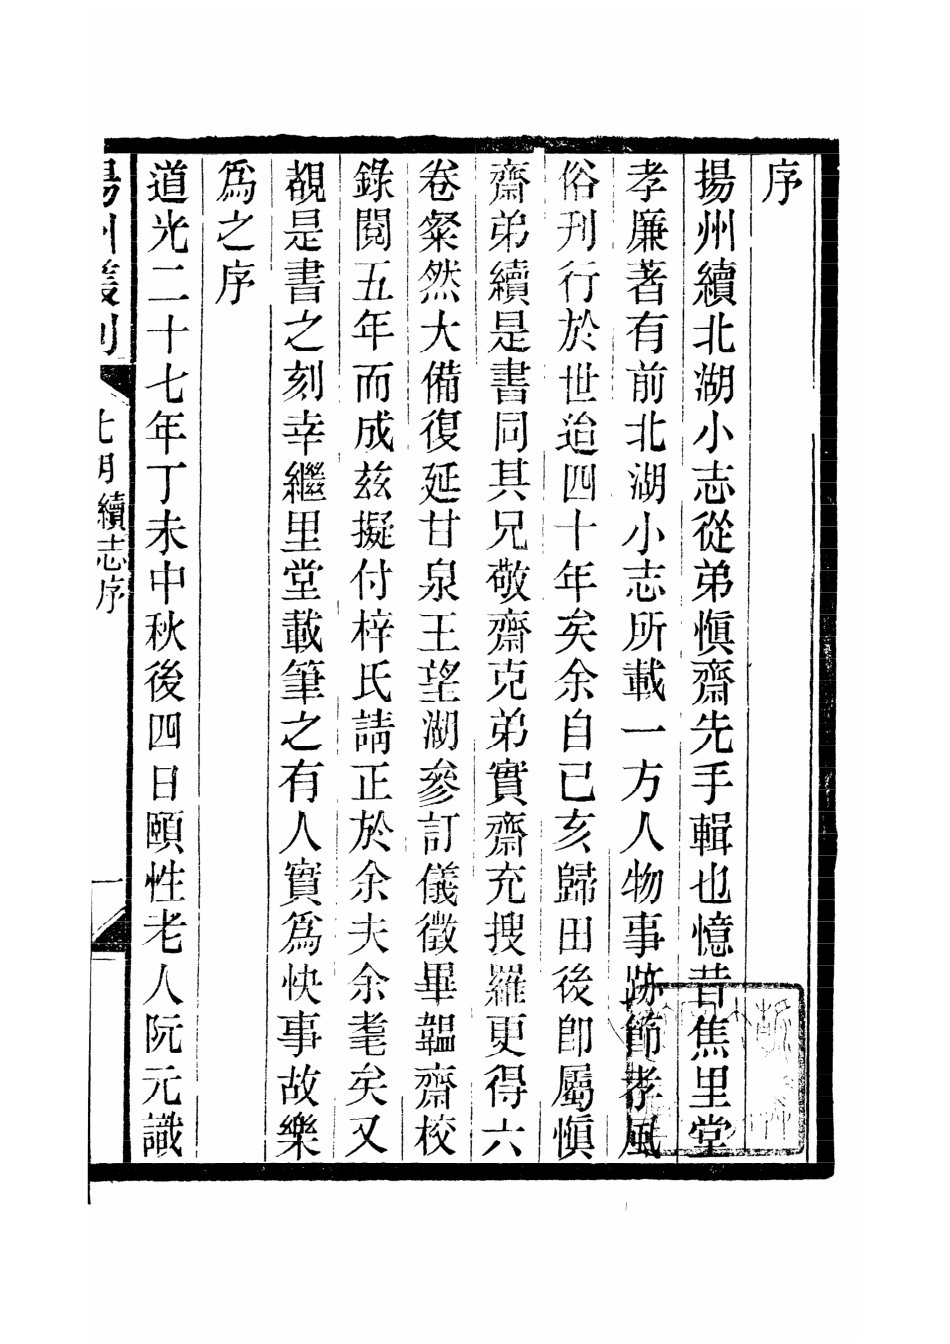 序
揚州續北湖小志從弟愼齋先手輯也憶昔焦里堂
孝廉著有前北湖小志所載一方人物事跡節孝風
俗刊行於世迨四十年矣余自己亥歸田後卽屬愼
齋弟續是書同其兄敬齋克弟實齋充搜羅更得六
卷粲然大備復延甘泉王望湖參訂儀徵畢韞齋校
錄閱五年而成茲擬付梓氏請正於余夫余耄矣又
覩是書之刻幸繼里堂載筆之有人實爲快事故樂
爲之序
道光二十七年丁未中秋後四日頤性老人阮元識
揚州叢刊 北湖續志序 一